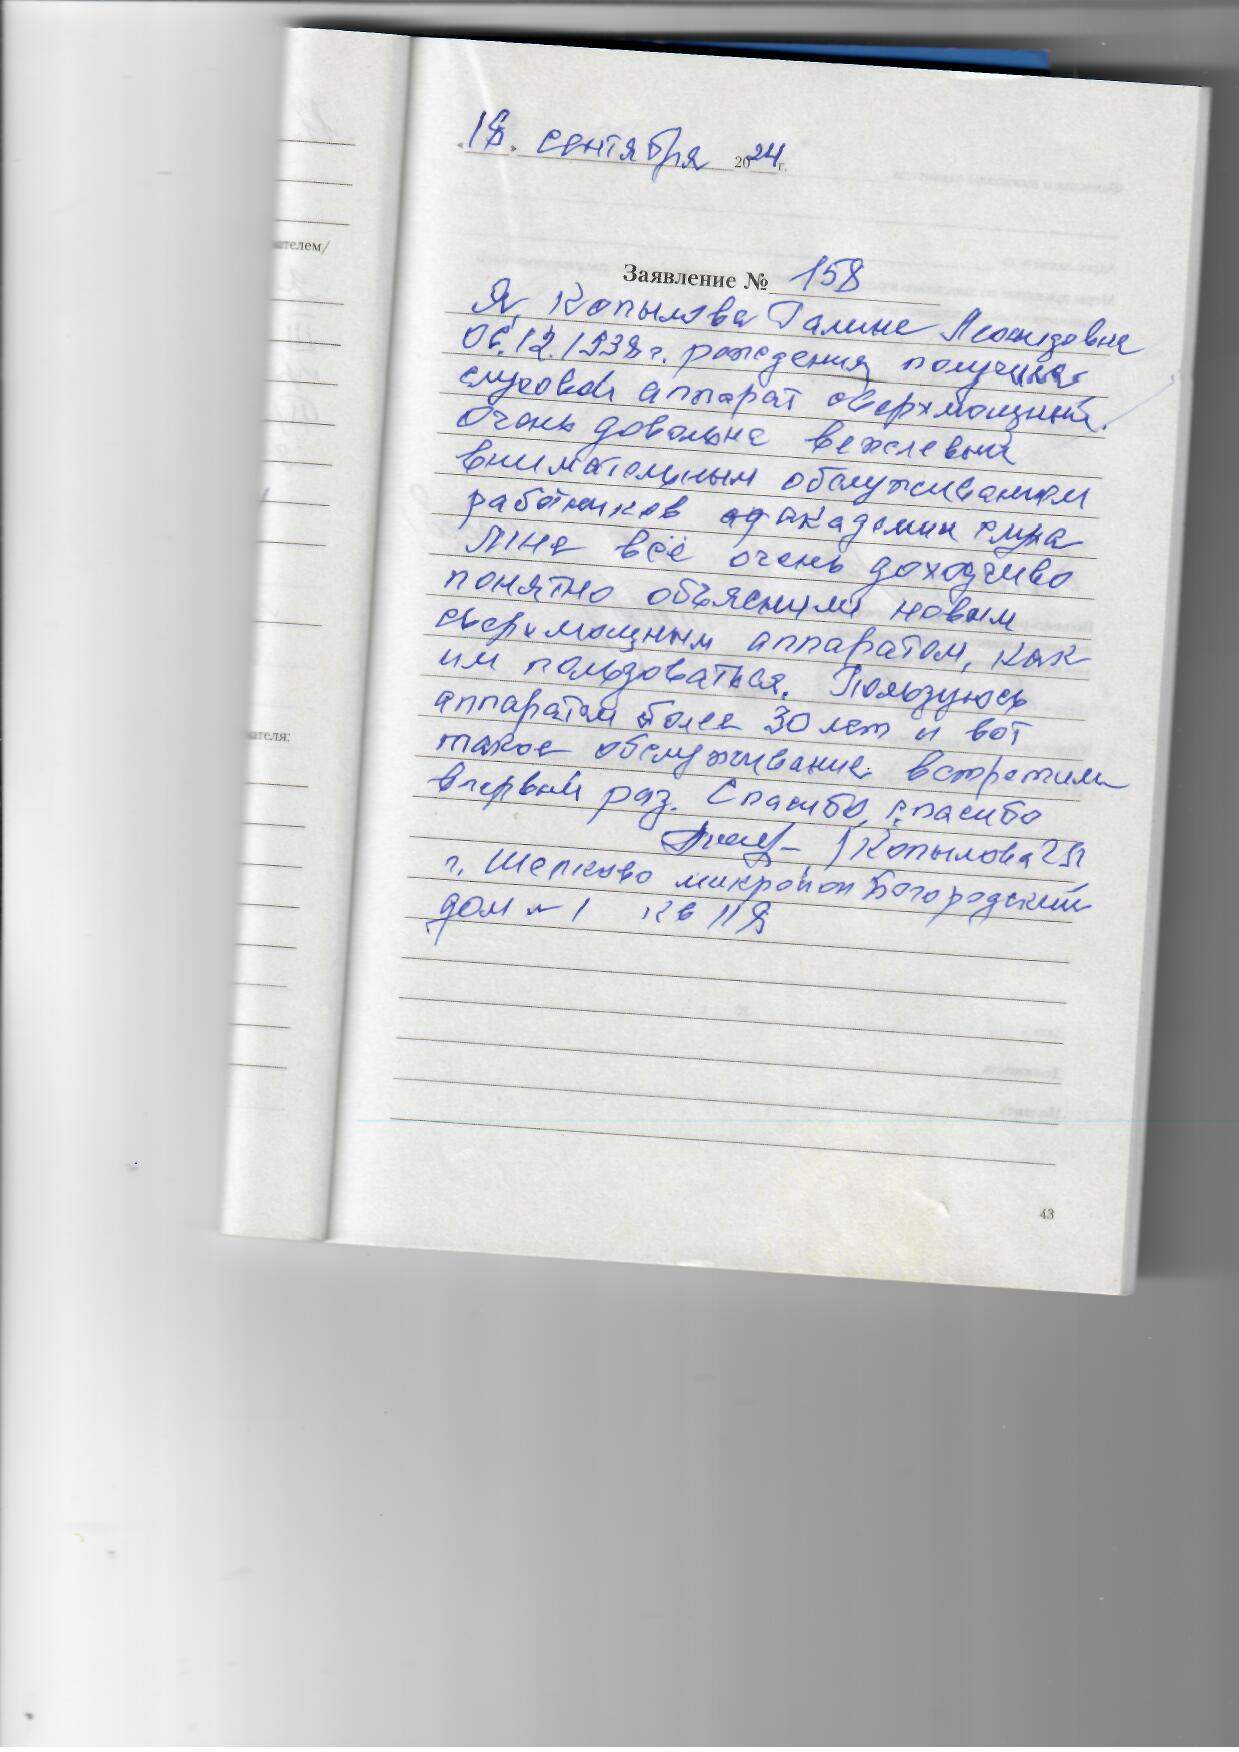 «18» сентября 2024 г.
ателем/
Заявление № 158
Я, Копылова Галина Леонидовна
06.12.1938 г. рождения получила
слуховой аппарат сверхмощный.
Очень довольна вежлевым
внимательным обслуживанием
работников Академии слуха
Мне всё очень доходчиво
понятно объяснили новым
сверхмощным аппаратом, как
им пользоваться. Пользуюсь
аппаратом более 30 лет и вот
ателя:
такое обслуживание встретили
впервый раз. Спасибо, спасибо
/Копылова ГЛ
г. Щелково микройон Богородский
дом № 1 кв 118
43